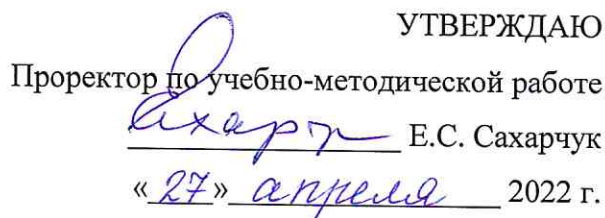 УТВЕРЖДАЮ
Проректор по учебно-методической работе
Сахарч Е.С. Сахарчук
« 27 » апреля 2022 г.